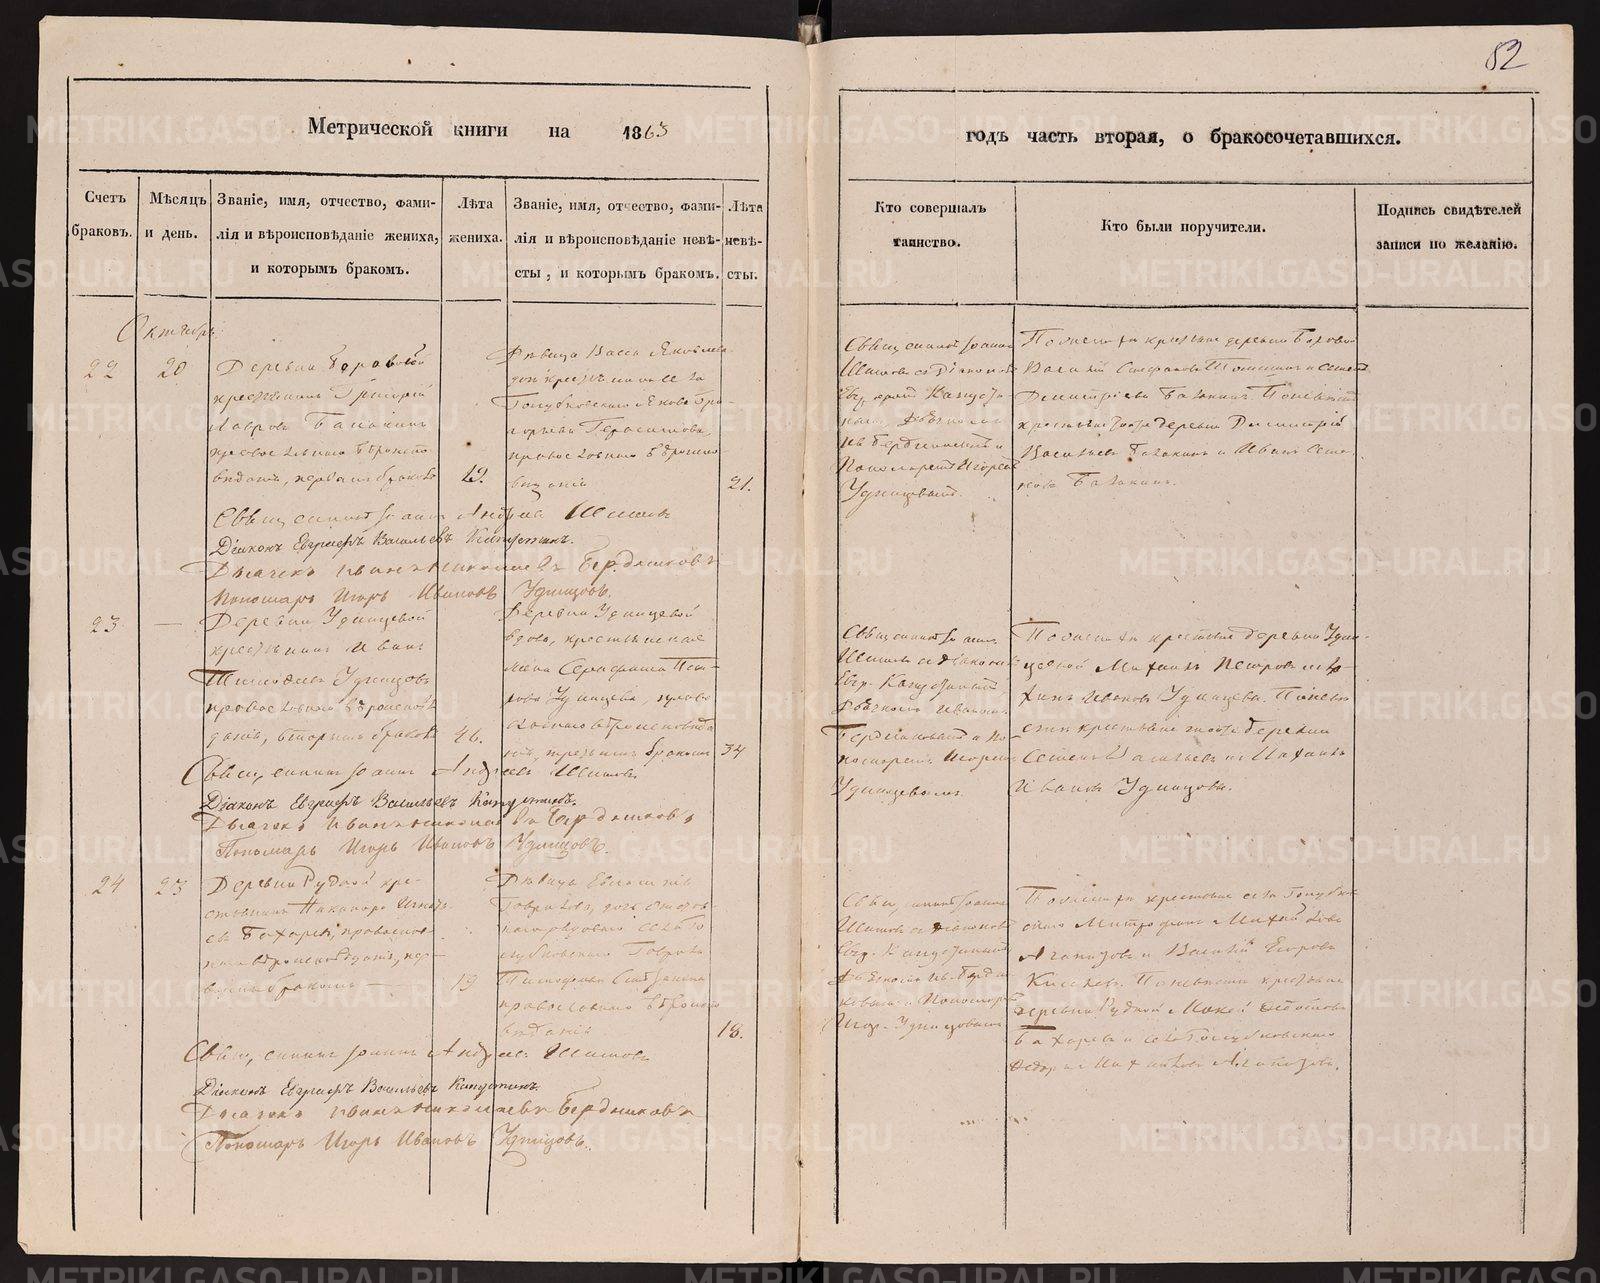 52
Метрической книги на 1863
годъ часть вторая, о бракосочетавшихся.
Счетъ браковъ.
Мѣсяцъ и день.
Званіе, имя, отчество, фами-
лія и вѣроисповѣданіе жениха,
и которымъ бракомъ.
Лѣта
жениха.
Званіе, имя, отчество, фами-
лія и вѣроисповѣданіе невѣ-
сты, и которымъ бракомъ.
Лѣта
невѣ-
сты.
Кто совершалъ
таинство.
Кто были поручители.
Подпись свидѣтелей
записи по желанію.
Октябрь
22
20
Деревни Боровой
крестьянинъ Григорій
Лавровъ
православнаго вѣроиспо
веданія, первымъ бракомъ
19.
Дѣвица Васса Яковлева
Голубковскаго Якова Гри-
горьева Герасимова,
православнаго вѣроиспо
веданія
21.
Священникъ Іоаннъ
Шишовъ съ Діакономъ
Евгр. Капусти
нымъ, Дьячкомъ
Ив. Бердниковымъ и
Пономаремъ Игоремъ
Удинцовымъ.
По женихѣ крестьяне деревни Боровой
Василій Стефановъ и Семенъ
Дмитріевъ. По невѣстѣ
крестьяне тойже деревни Дмитрій
Васильевъ и Иванъ Семе-
новъ
Священникъ Іоаннъ Андреевъ Шишовъ
Діаконъ Евграфъ Васильевъ Капустинъ.
Дьячекъ Иванъ Николаевъ Бердниковъ
Пономарь Игорь Ивановъ Удинцовъ.
23
—
Деревни Удинцевой
крестьянинъ Иванъ
Тимофеевъ Удинцовъ
православнаго вѣроисповѣ
данія, вторымъ бракомъ
46.
Деревни Удинцевой
вдова, крестьянская
жена Серафима Пет-
рова Удинцева, право
славнаго вѣроисповѣда
нія, третьимъ бракомъ
34
Священникъ Іоаннъ
Шишовъ съ діакономъ
Евгр. Капустинымъ
Дьячкомъ Иваномъ
Бердниковымъ и По
номаремъ Игоремъ
Удинцевымъ.
По женихѣ крестьяне деревни Удин-
цевой Михаилъ Петровъ и
Ивановъ Удинцевы. По невѣ
стѣ крестьяне тойже деревни
Семенъ Васильевъ и Михаилъ
Ивановъ Удинцовы.
Священникъ Іоаннъ Андреевъ Шишовъ
Діаконъ Евграфъ Васильевъ Капустинъ.
Дьячекъ Иванъ Николаевъ Бердниковъ
Пономарь Игорь Ивановъ Удинцовъ.
24
23
Деревни Рудной кре-
стьянинъ Никаноръ Игнать-
евъ Бахаревъ, православ-
наго вѣроисповѣданія, пер-
вымъ бракомъ —
19
Дѣвица Евгенія
Гаврилова, дочь
села Го
лубковскаго Гаврила
Тимофеева
православнаго вѣроиспо
веданія
18.
Священникъ Іоаннъ
Шишовъ съ діакономъ
Евгр. Капустинымъ
Дьячкомъ Ив. Бердни
ковымъ и Пономаремъ
Игор. Удинцовымъ
По женихѣ крестьяне села Голубков
скаго Митрофанъ Михайловъ
Агапитовъ и Василій Егоровъ
По невѣстѣ крестьяне
деревни Рудной Мокей Федотовъ
Бахаревъ и села Голубковскаго
Федоръ Михайловъ Агапитовъ.
Священникъ Іоаннъ Андреевъ Шишовъ
Діаконъ Евграфъ Васильевъ Капустинъ.
Дьячекъ Иванъ Николаевъ Бердниковъ
Пономарь Игорь Ивановъ Удинцовъ.
METRIKI.GASO-URAL.RU